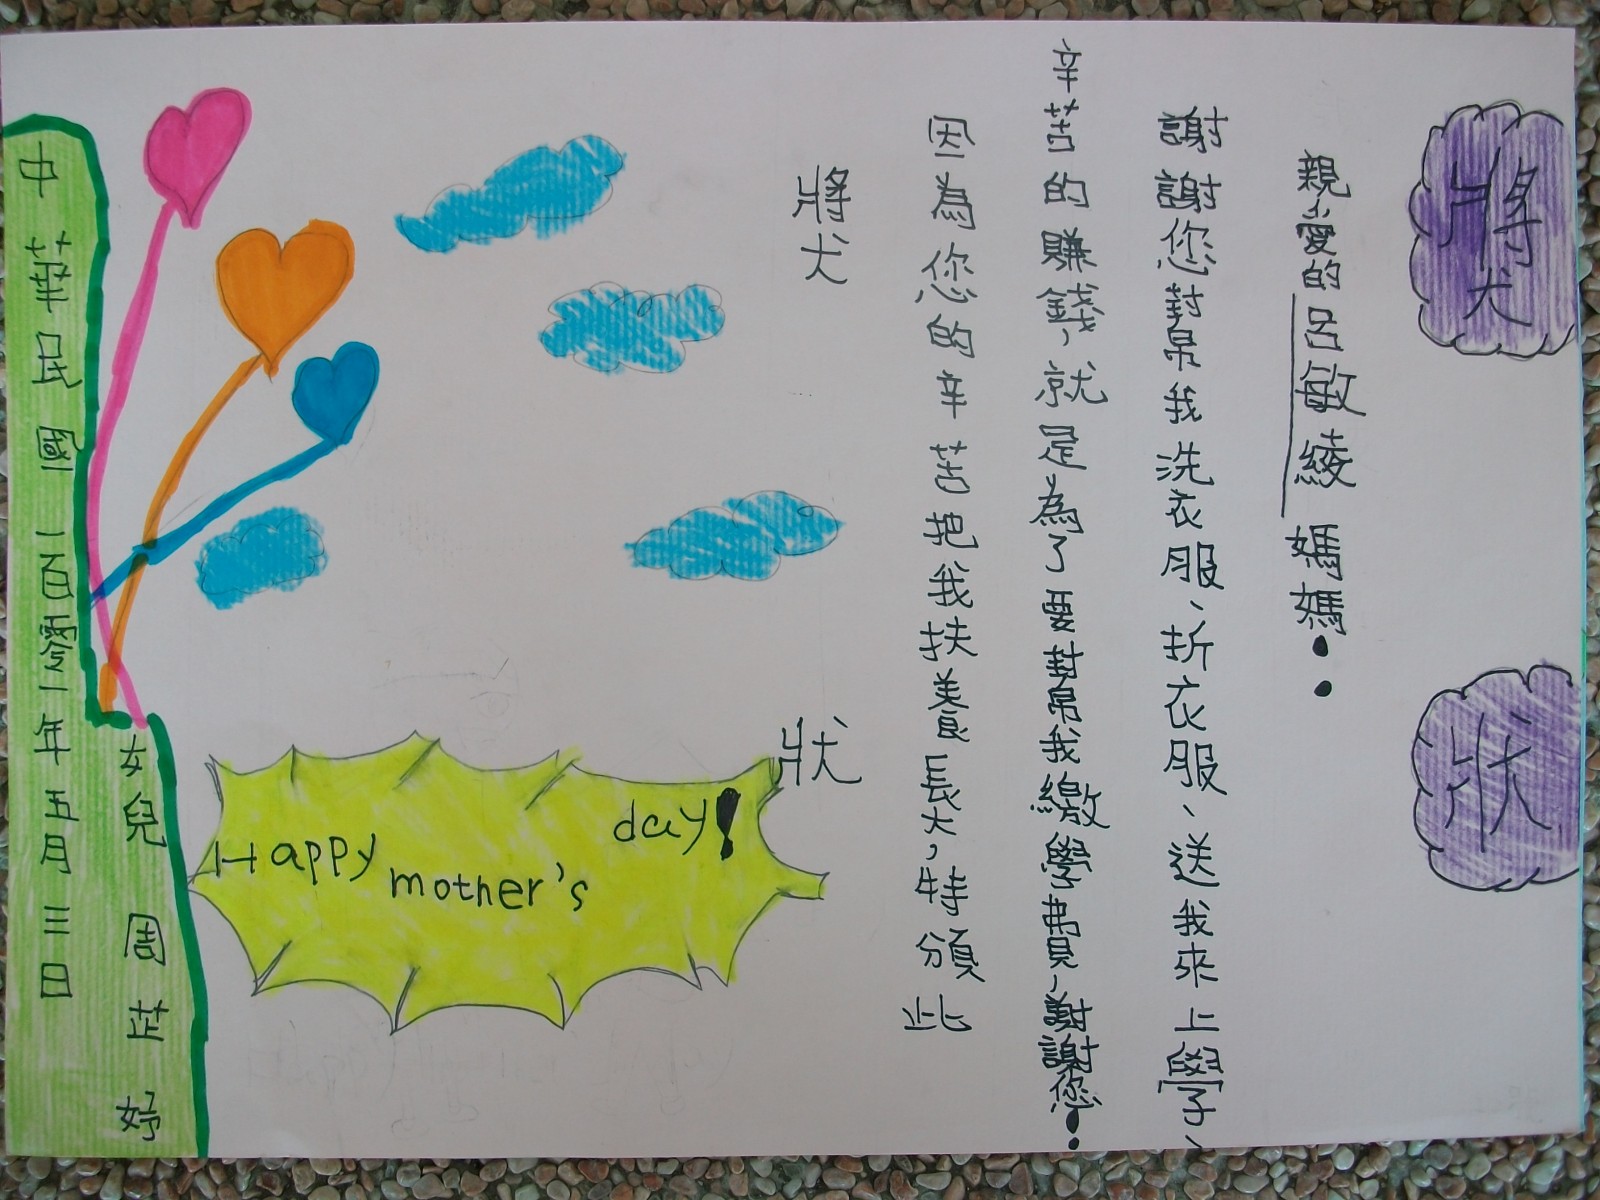 獎狀
親愛的呂敏綾媽媽!
謝謝您幫我洗衣服、折衣服、送我來上學、
辛苦的賺錢,就是為了要幫我繳學費,謝謝您!
因為您的辛苦把我扶養長大,特頒此
獎狀
Happy mother's day!
女兒 周芷妤
中華民國一百零一年五月三日